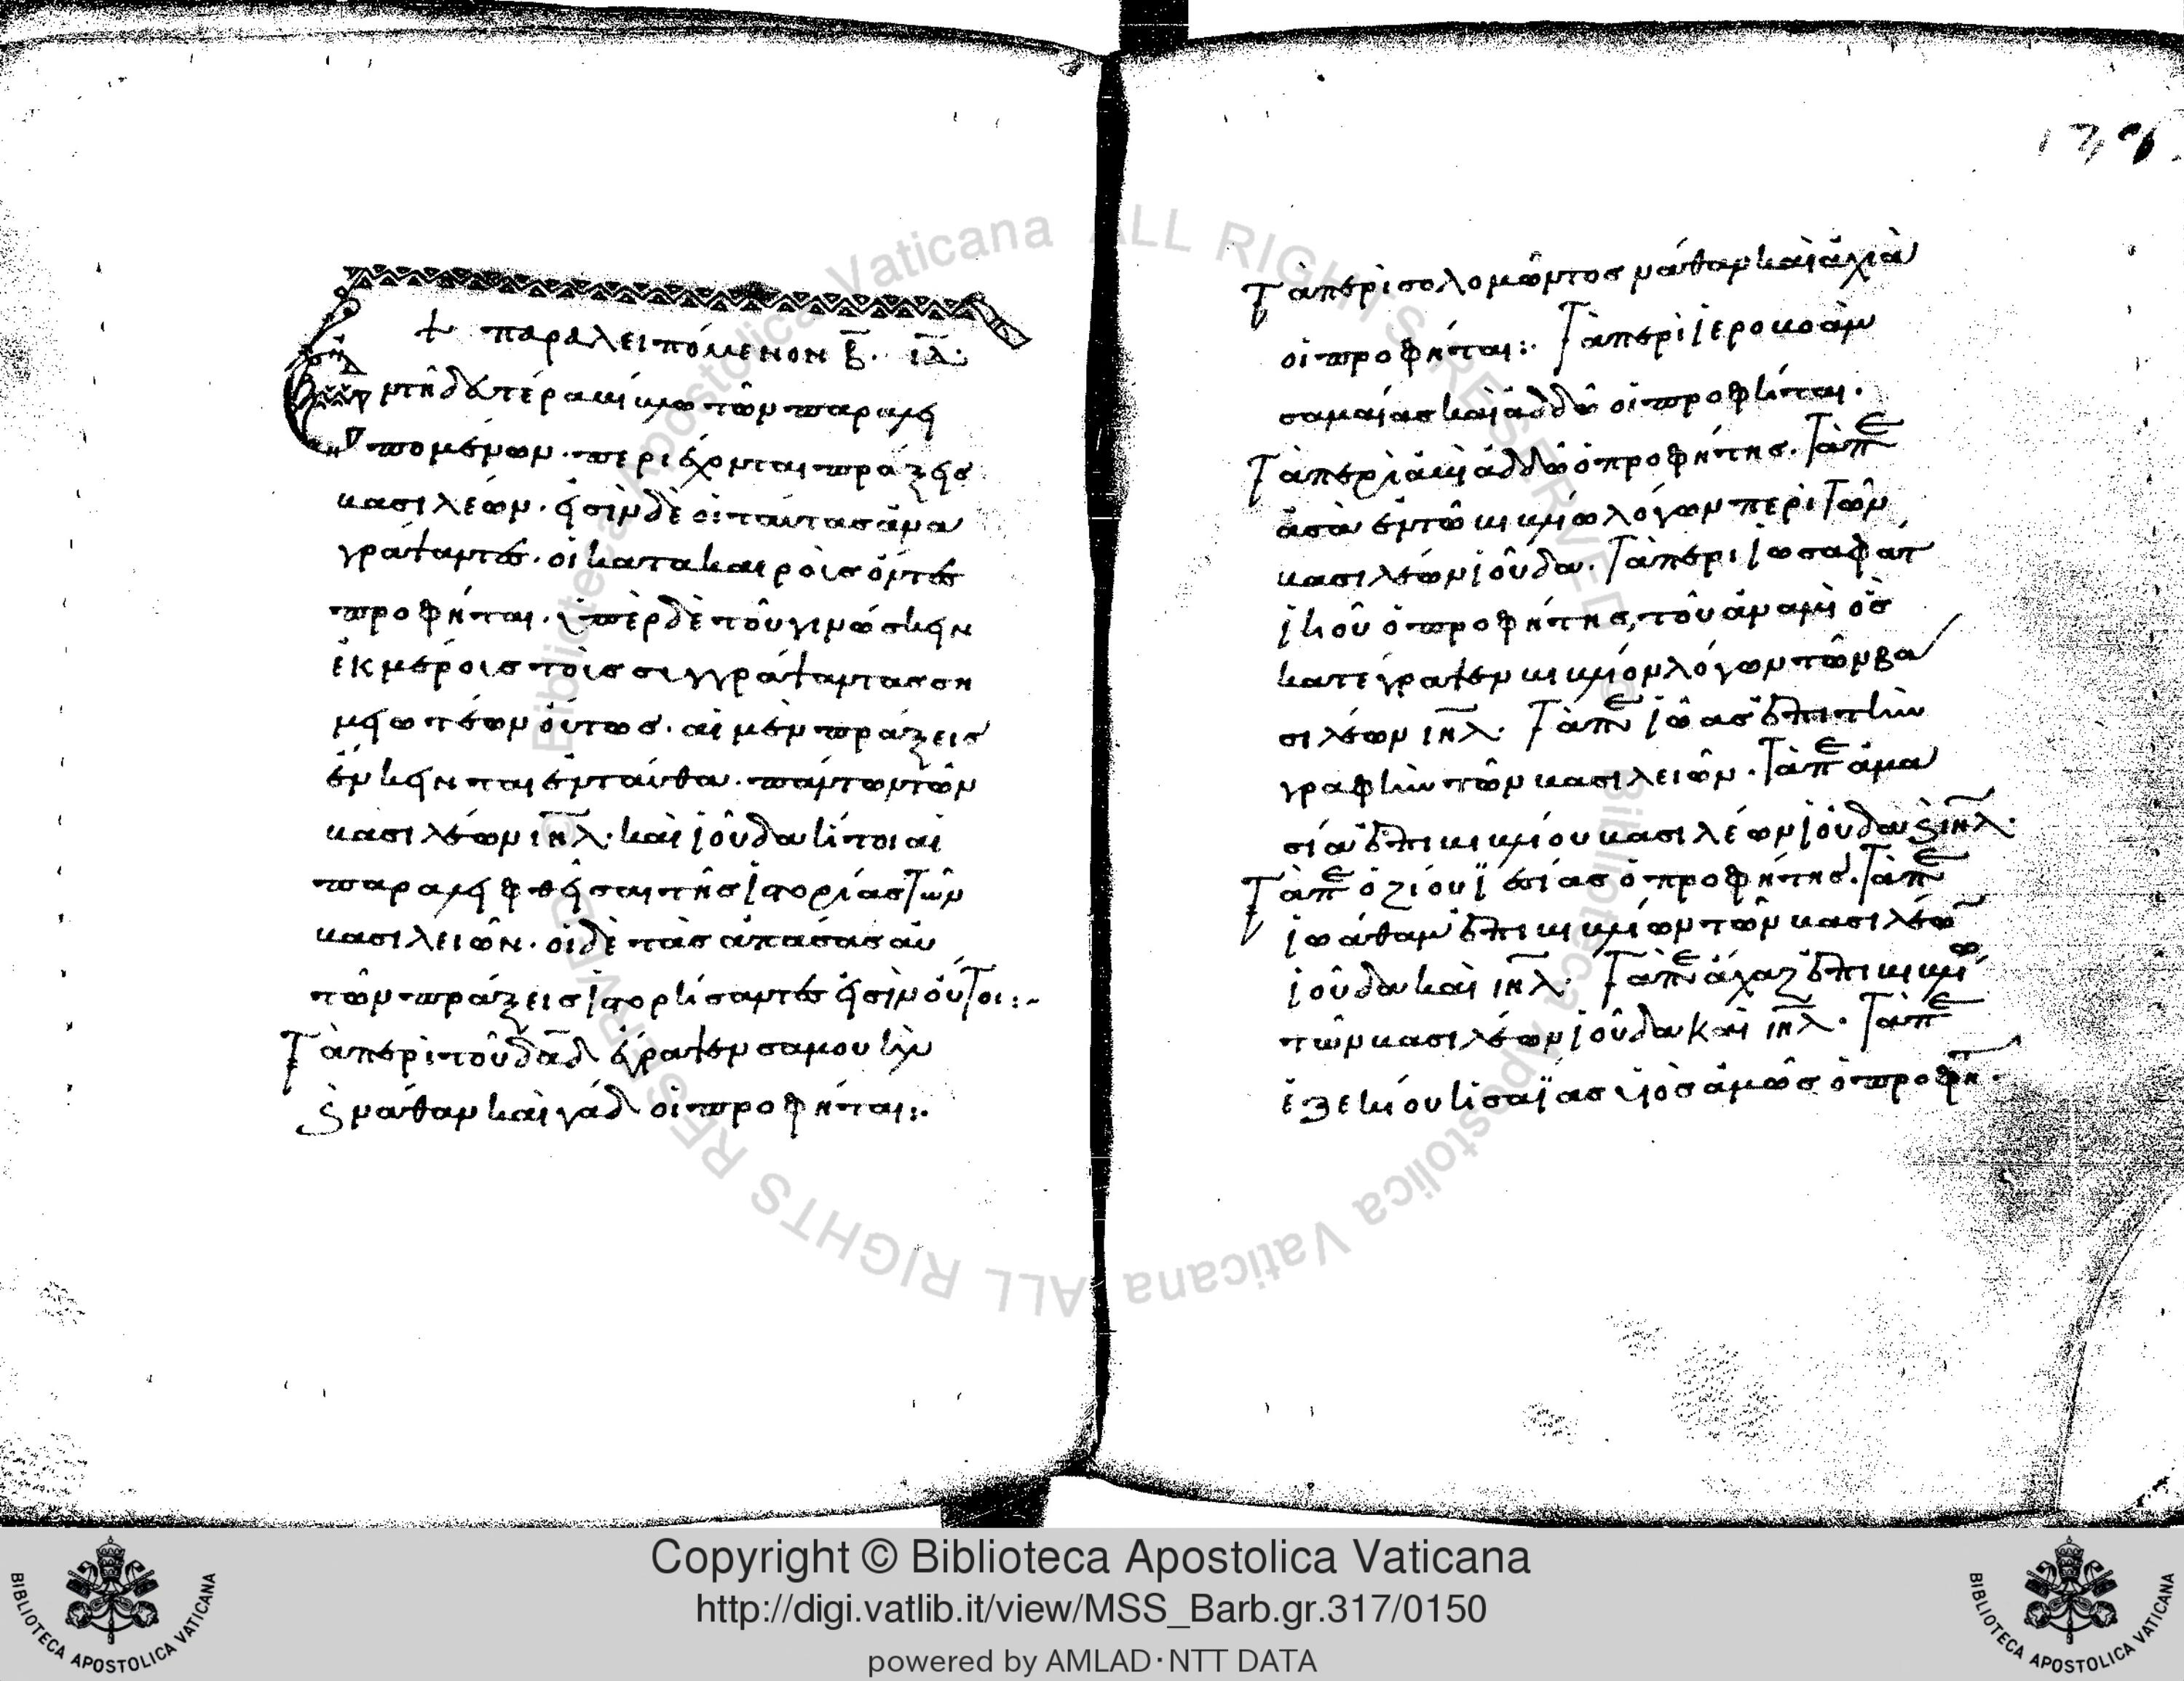 + παραλειπόμενον β̅. ι̅α̅.
Ἐν τῆ δευτέρα βίβλω τῶν παραλει
πομένων. περιέχονται πράξεις
βασιλέων. εἰσὶν δὲ οἱ ταύτας ἀνα
γράψαντες. οἱ κατα καιροὶς ὄντες
προφήται. ὑπὲρ δὲ τοῦ γινώσκειν
ἐκ μέροις τοῖς συγγράψαντας ση
μειωτέων οὕτως. αἱ μὲν πράξεις
ἔγκεινται ἐνταύθα. πάντων τῶν
βασιλέων ιη̅λ. καὶ ἰοῦδα ἤτοι αἱ
παραλειφθεῖσαι τῆς ἱστορίας τῶν
βασιλειῶν. οἱ δὲ τὰς ἁπάσας αὐ
τῶν πράξεις ἱστορήσαντες εἰσὶν οὕτοι:-
Τὰ περὶ τοῦ δα̅δ ἔγραψεν σαμουὴλ
ϗ νάθαν καὶ γάδ οἱ προφήται:.
Τὰ περὶ σολομῶντος νάθαν καὶ ἀχιὰ
οἱ προφήται:. Τὰ περὶ ἱεροβοὰμ
σαμαίας καὶ ἀδδῶ οἱ προφήται.
Τὰ περὶ ἀβιὰ ἀδδῶ ὁ προφήτης. Τὰ πε
ἀσὰ ἐν τῶ βιβλίω λόγων περὶ τῶν
βασιλέων ἰοῦδα. Τὰ περὶ ἰωσαφατ
ἰηοῦ ὁ προφήτης, τοῦ ἀνανὶ ὃς
κατέγραψεν βιβλίον λόγων τῶν βα
σιλέων ιη̅λ. Τὰ πε ἰῶας ἐπι τὴν
γραφὴν τῶν βασιλειῶν. Τὰ πε ἀμα
σία ἐπι βιβλίου βασιλέων ἰούδα ϗ ιη̅λ.
Τὰ πε ὀζίου ἰεσίας ὁ προφήτης. Τὰ πε
ἰωάθαμ ἐπι βιβλίων τῶν βασιλέω
ἰοῦδα καὶ ιη̅λ. Τὰ πε ἀχαζ ἐπι βιβλίω
τῶν βασιλέων ἰοῦδα καὶ ιη̅λ. Τὰ πε
ἐζεκίου ἠσαΐας υἱὸς ἀμῶς ὁ προφη.
Copyright © Biblioteca Apostolica Vaticana
http://digi.vatlib.it/view/MSS_Barb.gr.317/0150
powered by AMLAD·NTT DATA
BIBLIOTECA APOSTOLICA VATICANA
BIBLIOTECA APOSTOLICA VATICANA